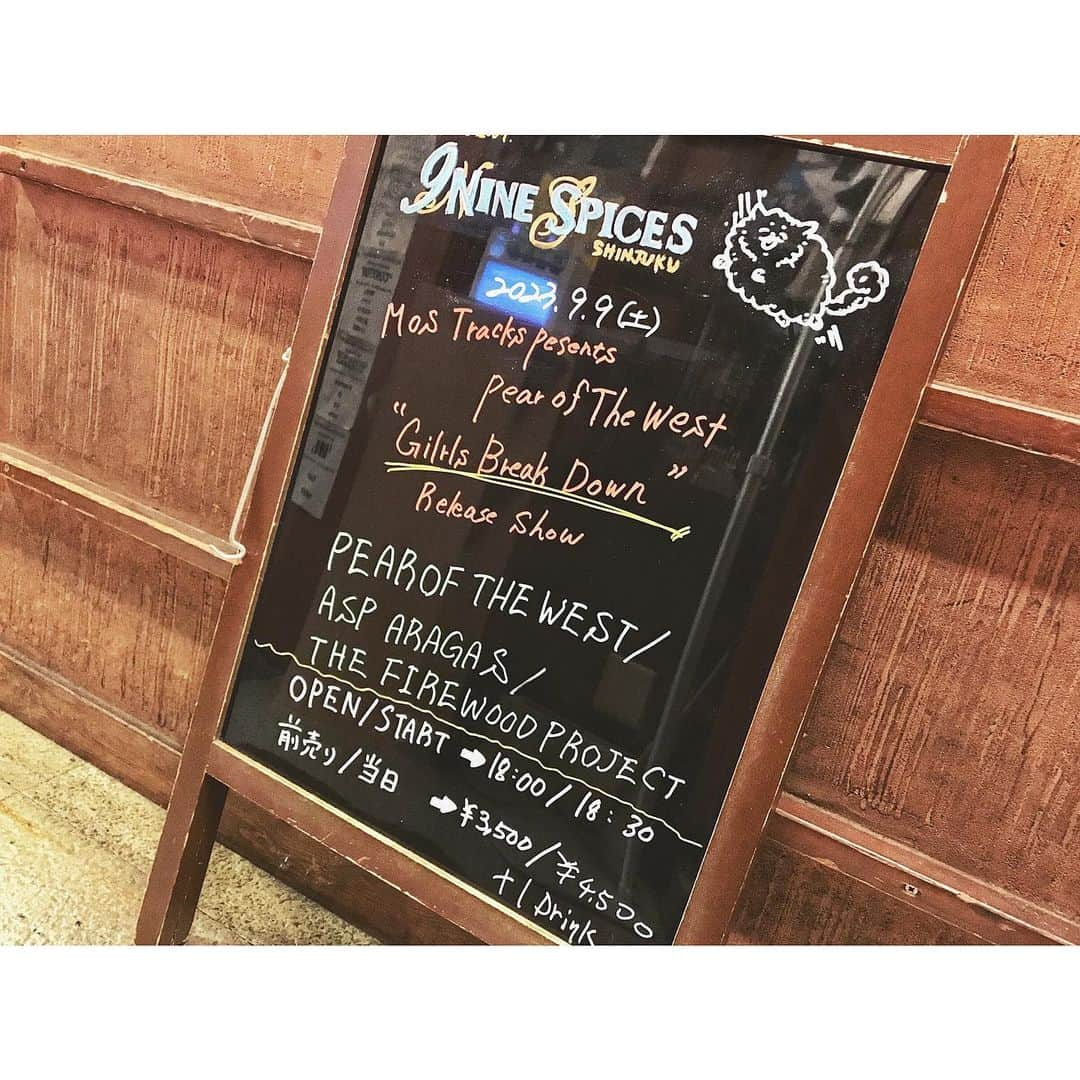 9 NINE SPICES
SHINJUKU
2023.9.9(土)
Mos Tracks pesents
Pear of The West
"Gilrls Break Down"
Release Show
PEAR OF THE WEST/
ASP ARAGAS/
THE FIREWOOD PROJECT
OPEN/START ➡ 18:00/18:30
前売り/当日 ➡ ¥3,500/¥4,500
+1 Drink